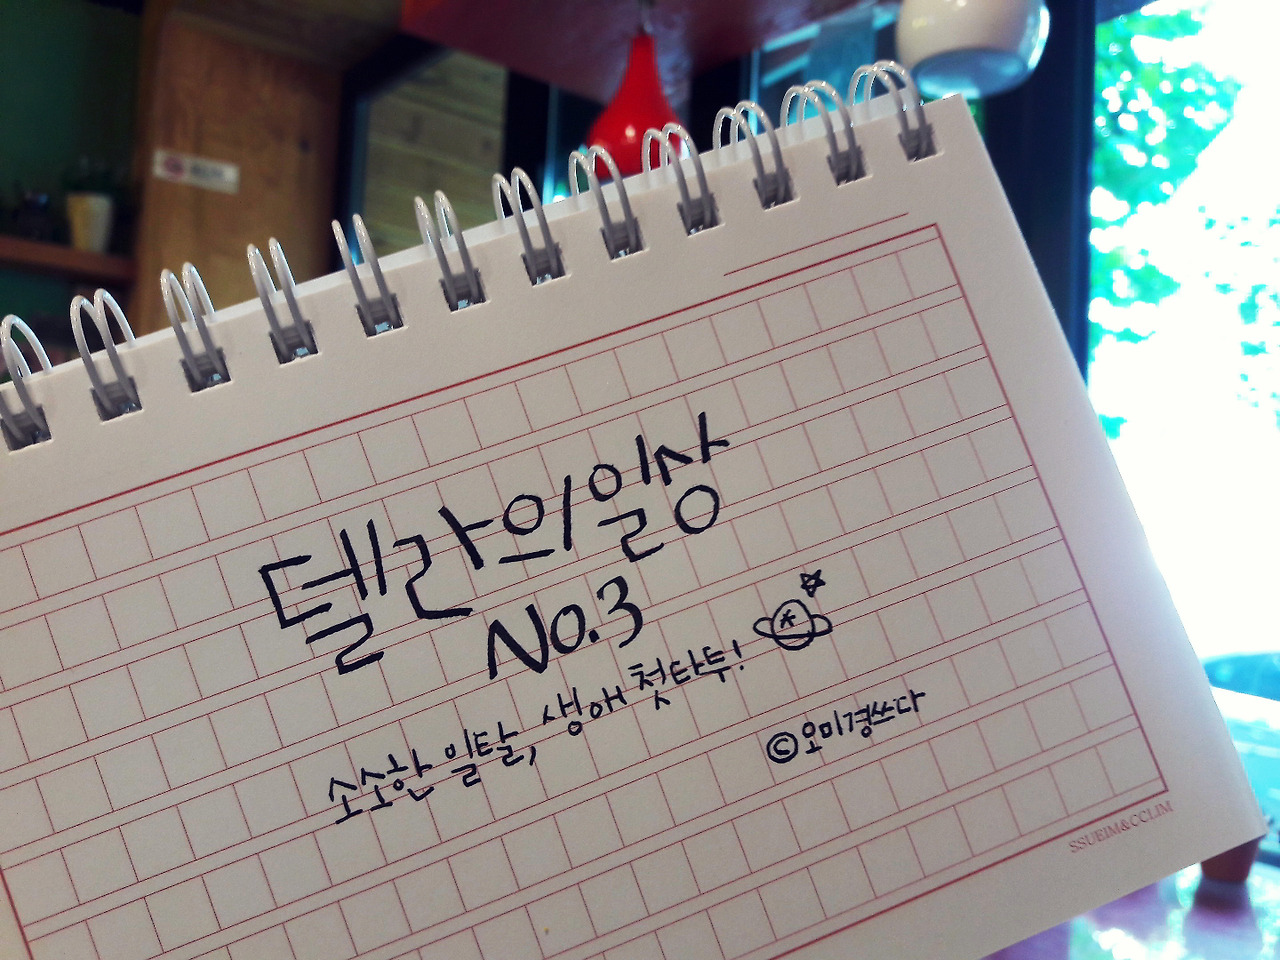 델라의일상
No.3
소소한 일탈, 생애 첫타투!
©오미경쓰다
SSUEIM&CCLIM